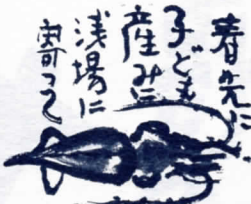 春先に
子ども
産みに
浅場に
寄って